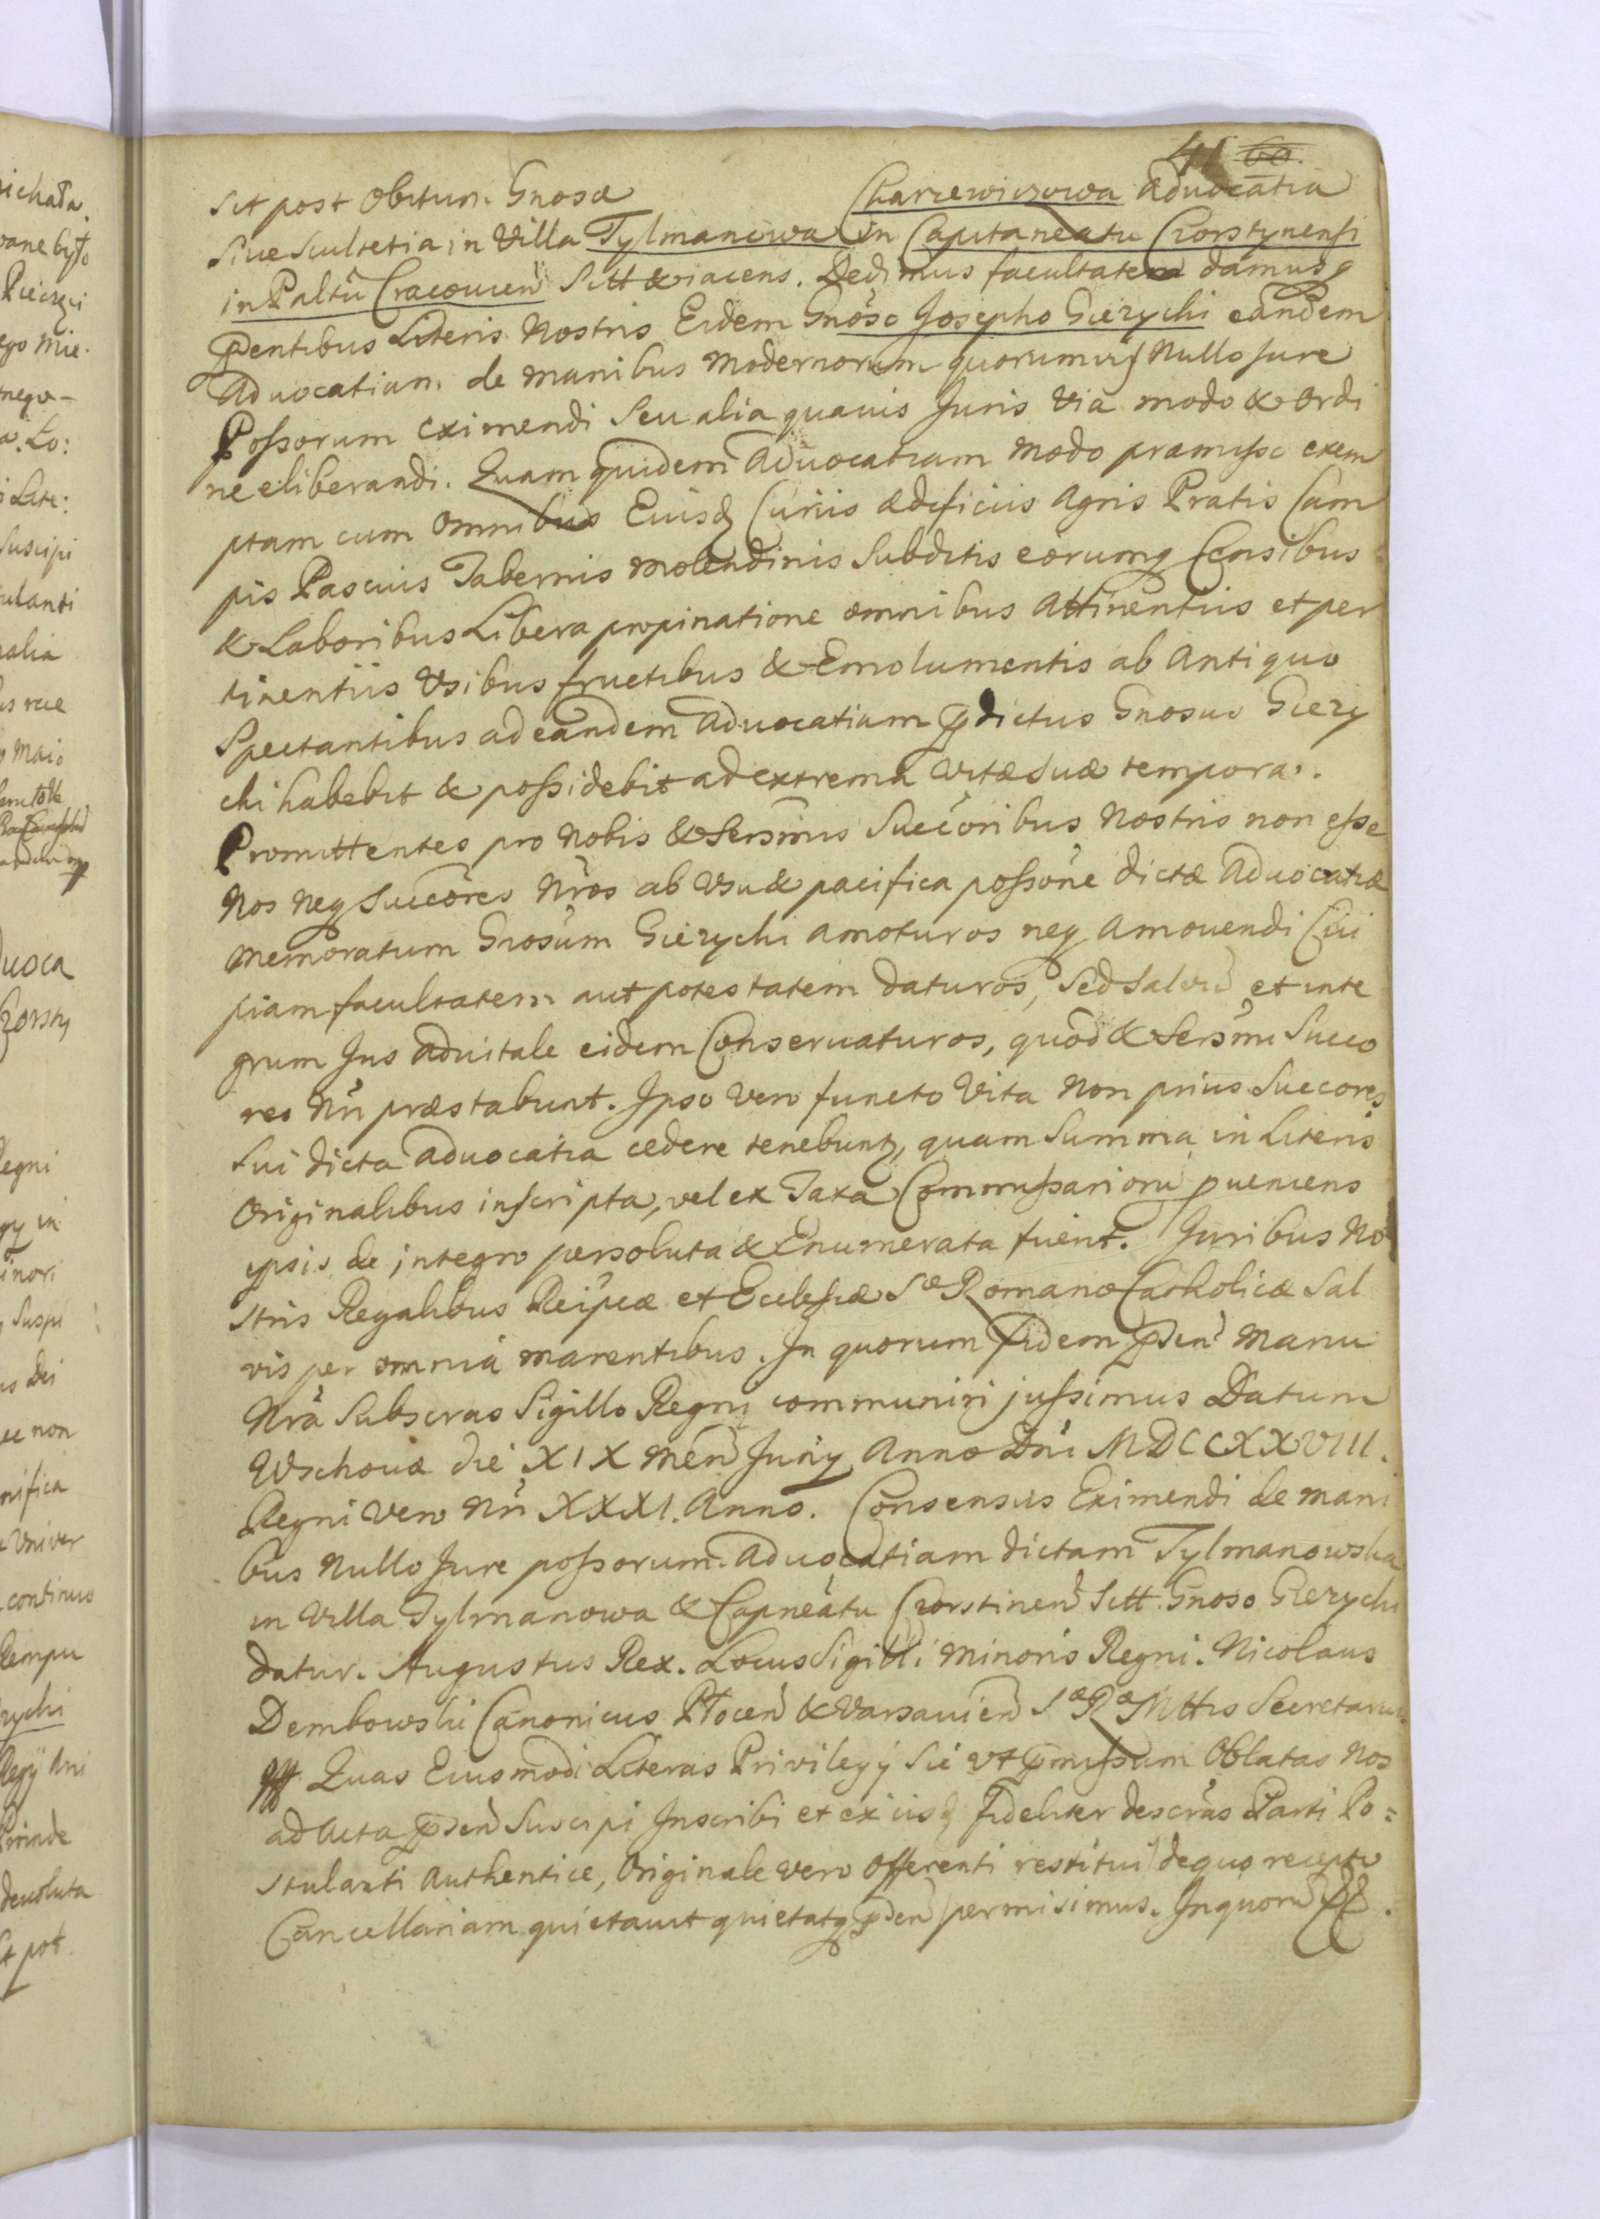 41 60.
sit post obitum Gnosæ Charzewiczowa Advocatia
Siue Scultetia in Villa Tylmanowa in Capitaneatu Czorstynensi
in Paltũ Cracouien Sitt & iacens. Dedimus facultatem damusq
pentibus Literis Nostris Eidem Gnoso Josepho Gierychi eandem
Advocatiam de manibus modernorum quorumuis Nullo Jure
Possorum eximendi Seu alia quauis Juris via modo & ordi
ne eliberandi. Quam quidem Aduocatiam modo præmisso exem
ptam cum omnibus Eiusd Curiis ædificiis Agris Pratis Cam
pis Pascuis Tabernis molendinis Subditis eorumq Censibus
& Laboribus Libera propinatione omnibus Attinentiis et per
tinentiis Vsibus fructibus & Emolumentis ab Antiquo
Spectantibus ad eandem Aduocatiam pdictus Gnosus Giery
chi habebit & possidebit ad extrema vitæ suæ tempora.
Promittentes pro Nobis & Sersmis Succoribus Nostris non esse
Nos neq Succores Nros ab Vsu & pacifica possone dictæ Aduocatiæ
memoratum Gnosum Gierychi amoturos neq amouendi Cui
piam facultatem aut potestatem daturos, Sed Saluũ et inte
grum Jus aduitale eidem Conseruaturos, quod & Sersmi Succo
res Nri præstabunt. Ipso vero functo Vita non prius Succores
sui dicta aduocatia cedere tenebunt, quam Summa in Literis
Originalibus inscripta, vel ex Taxa Commissariorũ pueniens
ipsis de integro persoluta & Enumerata fuerit. Juribus No
stris Regalibus Reipcæ et Ecclesiæ Sæ Romanæ Catholicæ Sal
vis per omnia manentibus. In quorum fidem pden manu
Nra Subscras Sigillo Regni communiri jussimus Datum
Wschouæ die XIX Men Junij Anno Dni MDCCXXVIII.
Regni vero Nri XXXI. Anno. Consensus Eximendi de mani
bus Nullo Jure possorum Aduocatiam dictam Tylmanowska
in Villa Tylmanowa & Capneatu Czorstinen Sitt Gnoso Gierychi
datur. Augustus Rex. Locus Sigilli minoris Regni. Nicolaus
Dembowski Canonicus Plocen & Varsauien Sæ Ræ Mttis Secretarius
Quas Eiusmodi Literas Privilegij Sic vt pmissum Oblatas Nos
ad Acta pden Suscipi Inscribi et ex iisd fideliter descras Parti Po=
stulanti Authentice, Originale vero Offerenti restitui de quo recepto
Cancellariam quietauit quietatq pden permisimus. In quorũ